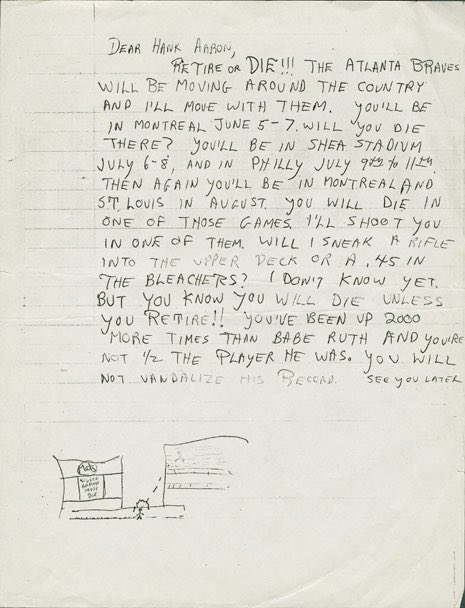 DEAR HANK AARON,
RETIRE OR DIE!!! THE ATLANTA BRAVES
WILL BE MOVING AROUND THE COUNTRY
AND I'LL MOVE WITH THEM. YOU'LL BE
IN MONTREAL JUNE 5-7. WILL YOU DIE
THERE? YOU'LL BE IN SHEA STADIUM
JULY 6-8, AND IN PHILLY JULY 9TH TO 11TH.
THEN AGAIN YOU'LL BE IN MONTREAL AND
ST. LOUIS IN AUGUST. YOU WILL DIE IN
ONE OF THOSE GAMES. I'LL SHOOT YOU
IN ONE OF THEM. WILL I SNEAK A RIFLE
INTO THE UPPER DECK OR A .45 IN
THE BLEACHERS? I DON'T KNOW YET.
BUT YOU KNOW YOU WILL DIE UNLESS
YOU RETIRE!! YOU'VE BEEN UP 2000
MORE TIMES THAN BABE RUTH AND YOU'RE
NOT 1/2 THE PLAYER HE WAS. YOU WILL
NOT VANDALIZE HIS RECORD. SEE YOU LATER
Mets
MUST
DIE